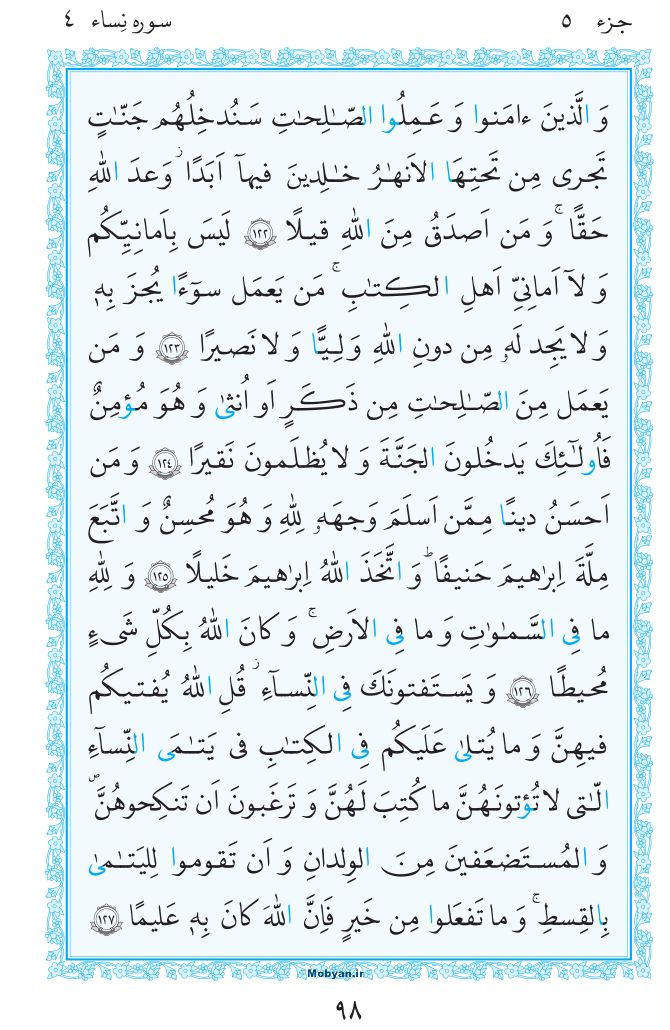 جزء ٥ سوره نِساء ٤
وَ الَّذينَ ءامَنوا وَ عَمِلُوا الصّٰلِحٰتِ سَنُدخِلُهُم جَنّٰتٍ
تَجرى مِن تَحتِهَا الاَنهٰرُ خٰلِدينَ فيهآ اَبَدًا ۖ وَعدَ اللّٰهِ
حَقًّا ۚ وَ مَن اَصدَقُ مِنَ اللّٰهِ قيلًا ﴿١٢٢﴾ لَيسَ بِاَمانِيِّكُم
وَ لآ اَمانِىِّ اَهلِ الكِتٰبِ ۗ مَن يَعمَل سوٓءًا يُجزَ بِهٖ
وَ لا يَجِد لَهٗ مِن دونِ اللّٰهِ وَلِيًّا وَ لا نَصيرًا ﴿١٢٣﴾ وَ مَن
يَعمَل مِنَ الصّٰلِحٰتِ مِن ذَكَرٍ اَو اُنثىٰ وَ هُوَ مُؤمِنٌ
فَاُولٰٓئِكَ يَدخُلونَ الجَنَّةَ وَ لا يُظلَمونَ نَقيرًا ﴿١٢٤﴾ وَ مَن
اَحسَنُ دينًا مِمَّن اَسلَمَ وَجهَهٗ لِلّٰهِ وَ هُوَ مُحسِنٌ وَ اتَّبَعَ
مِلَّةَ اِبرٰهيمَ حَنيفًا ۗ وَ اتَّخَذَ اللّٰهُ اِبرٰهيمَ خَليلًا ﴿١٢٥﴾ وَ لِلّٰهِ
ما فِى السَّمٰوٰتِ وَ ما فِى الاَرضِ ۚ وَ كانَ اللّٰهُ بِكُلِّ شَىءٍ
مُحيطًا ﴿١٢٦﴾ وَ يَستَفتونَكَ فِى النِّسآءِ ۖ قُلِ اللّٰهُ يُفتيكُم
فيهِنَّ وَ ما يُتلىٰ عَلَيكُم فِى الكِتٰبِ فى يَتٰمَى النِّسآءِ
الّٰتى لا تُؤتونَهُنَّ ما كُتِبَ لَهُنَّ وَ تَرغَبونَ اَن تَنكِحوهُنَّ
وَ المُستَضعَفينَ مِنَ الوِلدانِ وَ اَن تَقوموا لِليَتٰمىٰ
بِالقِسطِ ۚ وَ ما تَفعَلوا مِن خَيرٍ فَاِنَّ اللّٰهَ كانَ بِهٖ عَليمًا ﴿١٢٧﴾
Mobyan.ir
٩٨